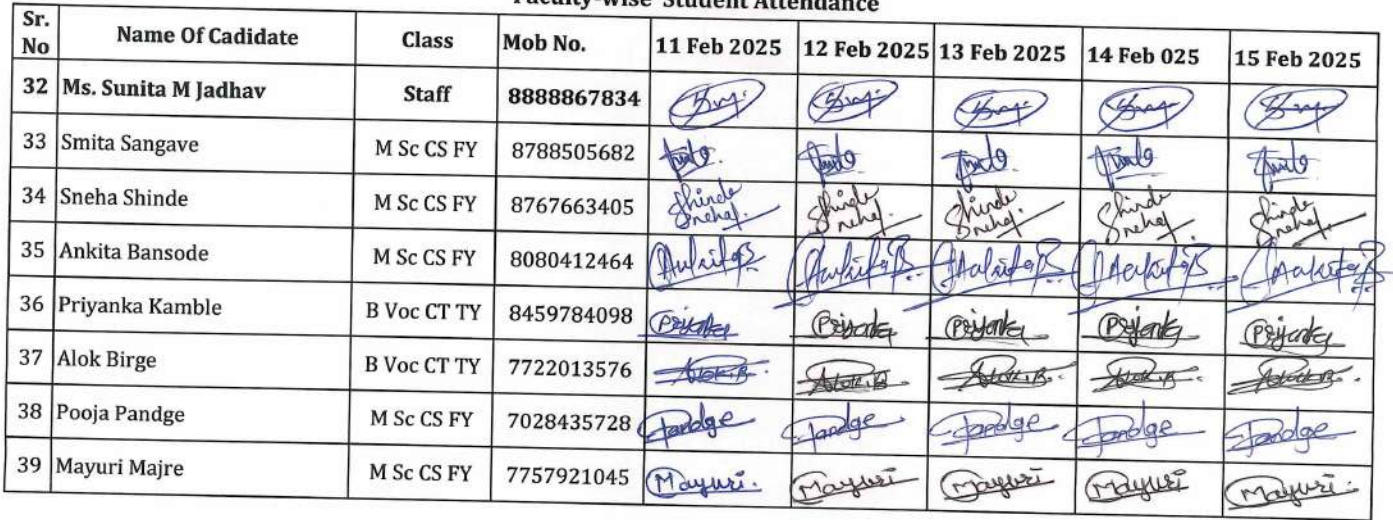 Faculty-wise Student Attendance
Sr. No Name Of Cadidate Class Mob No. 11 Feb 2025 12 Feb 2025 13 Feb 2025 14 Feb 025 15 Feb 2025
32 Ms. Sunita M Jadhav Staff 8888867834
33 Smita Sangave M Sc CS FY 8788505682
34 Sneha Shinde M Sc CS FY 8767663405 Shinde Sneha Shinde Sneha Shinde Sneha Shinde Sneha Shinde Sneha
35 Ankita Bansode M Sc CS FY 8080412464
36 Priyanka Kamble B Voc CT TY 8459784098
37 Alok Birge B Voc CT TY 7722013576 Alok.B. Alok.B Alok.B. Alok.B Alok.B.
38 Pooja Pandge M Sc CS FY 7028435728 Pandge Pandge Pandge Pandge Pandge
39 Mayuri Majre M Sc CS FY 7757921045 Mayuri. Mayuri Mayuri Mayuri Mayuri.